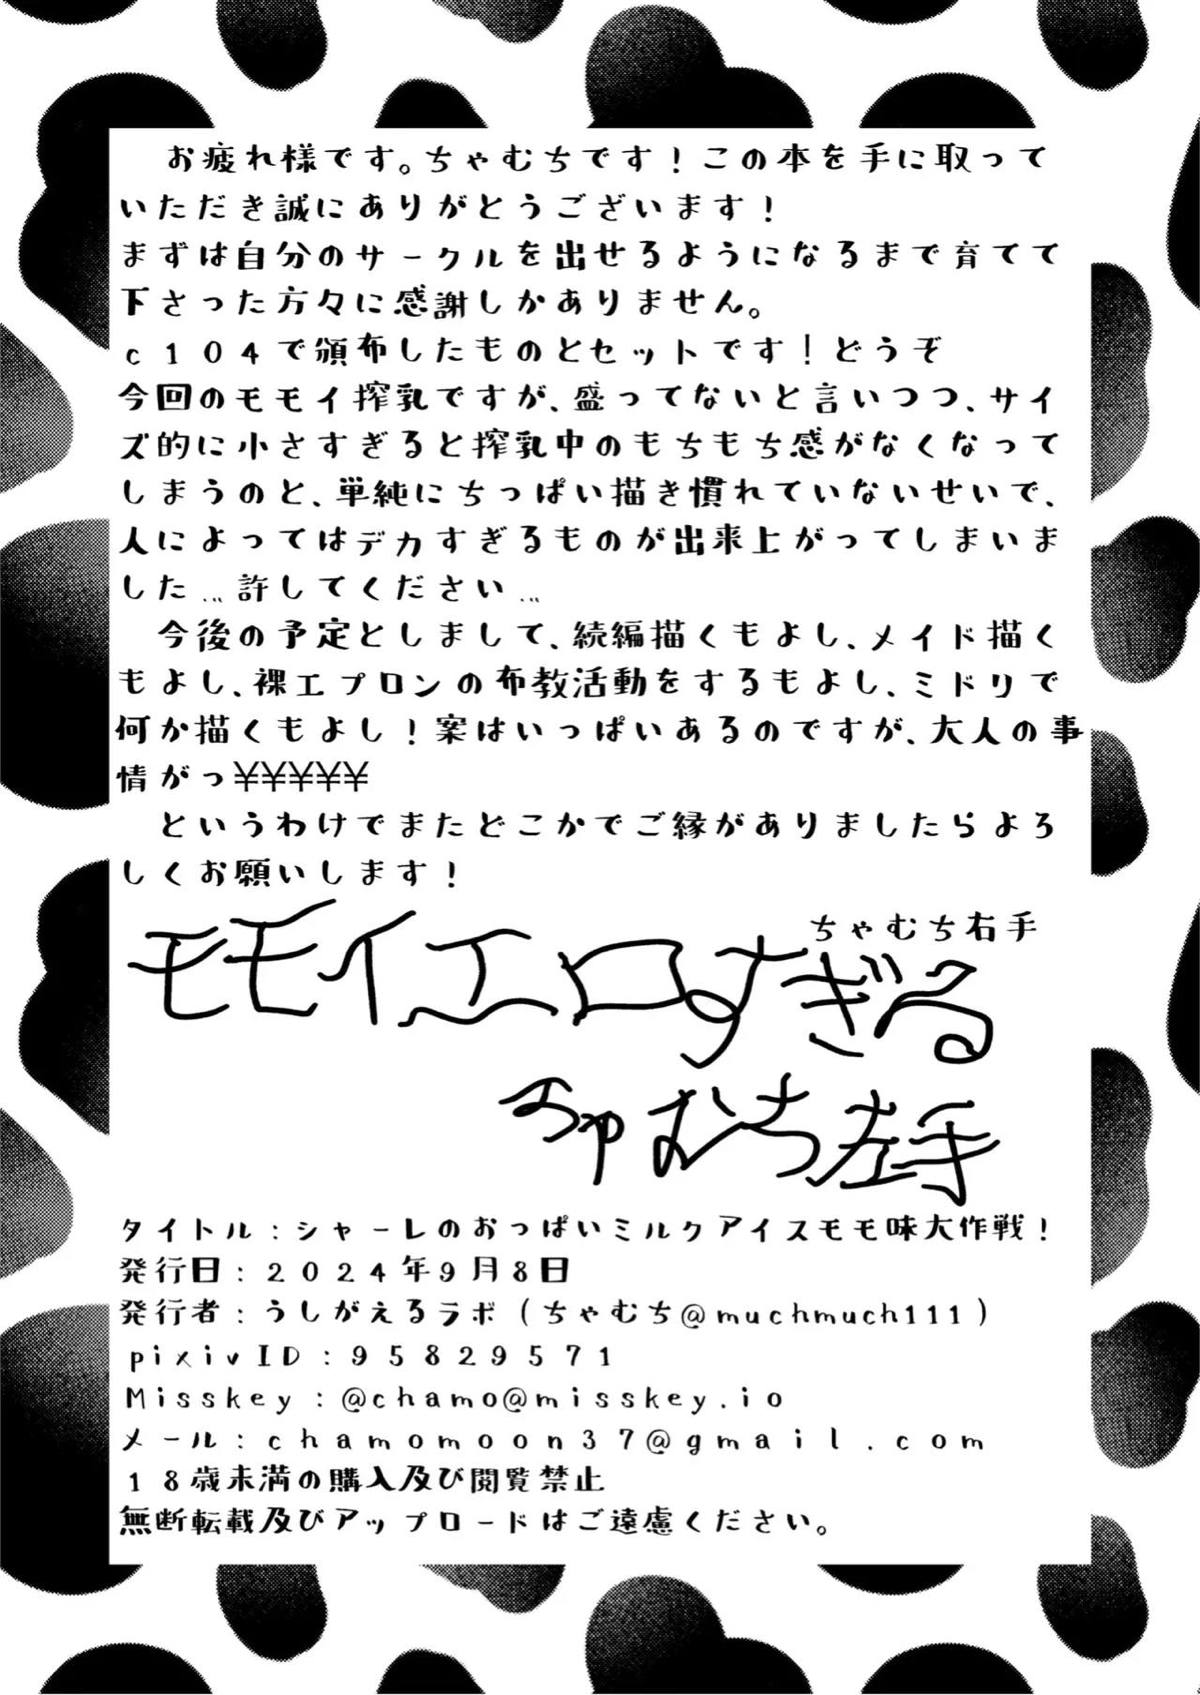 お疲れ様です。ちゃむちです！この本を手に取って
いただき誠にありがとうございます！
まずは自分のサークルを出せるようになるまで育てて
下さった方々に感謝しかありません。
c104で頒布したものとセットです！どうぞ
今回のモモイ搾乳ですが、盛ってないと言いつつ、サイ
ズ的に小さすぎると搾乳中のもちもち感がなくなって
しまうのと、単純にちっぱい描き慣れていないせいで、
人によってはデカすぎるものが出来上がってしまいま
した…許してください…
今後の予定としまして、続編描くもよし、メイド描く
もよし、裸エプロンの布教活動をするもよし、ミドリで
何か描くもよし！案はいっぱいあるのですが、大人の事
情がっ¥¥¥¥¥
というわけでまたどこかでご縁がありましたらよろ
しくお願いします！
ちゃむち右手
モモイエロすぎる
ちゃむち左手
タイトル：シャーレのおっぱいミルクアイスモモ味大作戦！
発行日：２０２４年９月８日
発行者：うしがえるラボ（ちゃむち@muchmuch111）
pixivID：95829571
Misskey：@chamo@misskey.io
メール：chamomoon37@gmail.com
１８歳未満の購入及び閲覧禁止
無断転載及びアップロードはご遠慮ください。